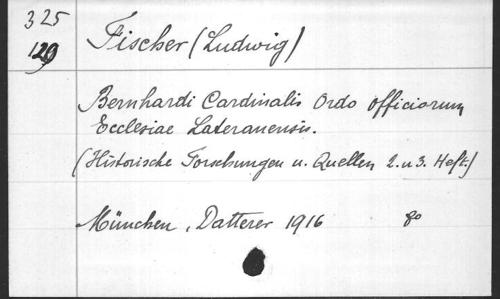 325
129
Fischer (Ludwig)
Bernhardi Cardinalis Ordo officiorum
Ecclesiae Lateranensis.
(Historische Forschungen u. Quellen 2. u 3. Heft.)
München, Datterer 1916 8°